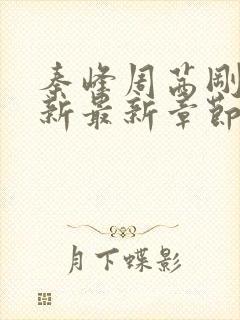 秦峰周茜刚
新最新章節
月下蝶影